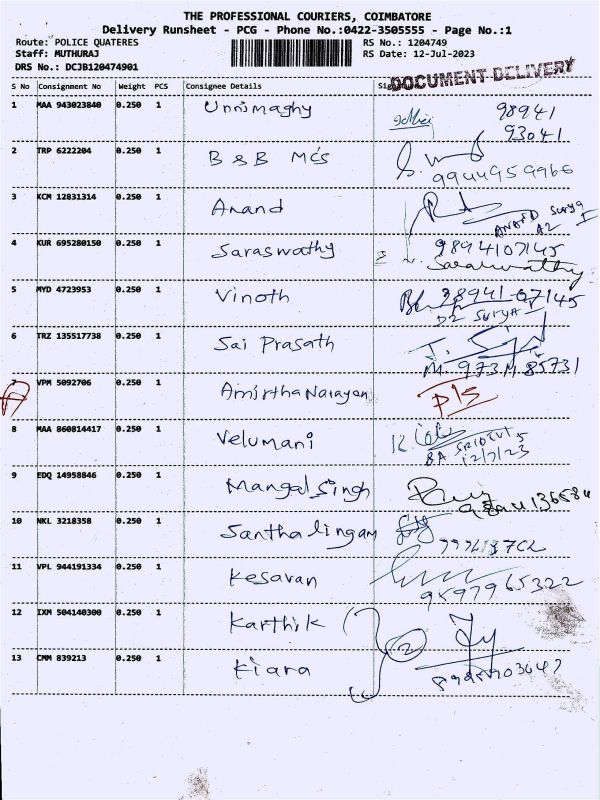 THE PROFESSIONAL COURIERS, COIMBATORE
Delivery Runsheet - PCG - Phone No.:0422-3505555 - Page No.:1
Route: POLICE QUATERES RS No.: 1204749
Staff: MUTHURAJ RS Date: 12-Jul-2023
DRS No.: DCJB120474901
DOCUMENT DELIVERY
S No Consignment No Weight PCS Consignee Details
1 MAA 943023840 0.250 1 Unnimaghy 98941
93041
2 TRP 6222204 0.250 1 B & B Mc's
9944959966
3 KCM 12831314 0.250 1 Anand
ANAND SURYA
A2 I
4 KUR 695280150 0.250 1 Saraswathy 9894107145
Saraswathy
5 MYD 4723953 0.250 1 Vinoth 98941-07145
D2 SURYA I
6 TRZ 135517738 0.250 1 Sai Prasath
7 VPM 5092706 0.250 1 Amirtha Narayan P/s
8 MAA 860814417 0.250 1 Velumani
12/7/23
9 EDQ 14958846 0.250 1 Mangal Singh
10 NKL 3218358 0.250 1 Santha lingam
11 VPL 944191334 0.250 1 Kesavan
9597965322
12 IXM 504140300 0.250 1 Karthik
2
13 CMM 839213 0.250 1 Kiara